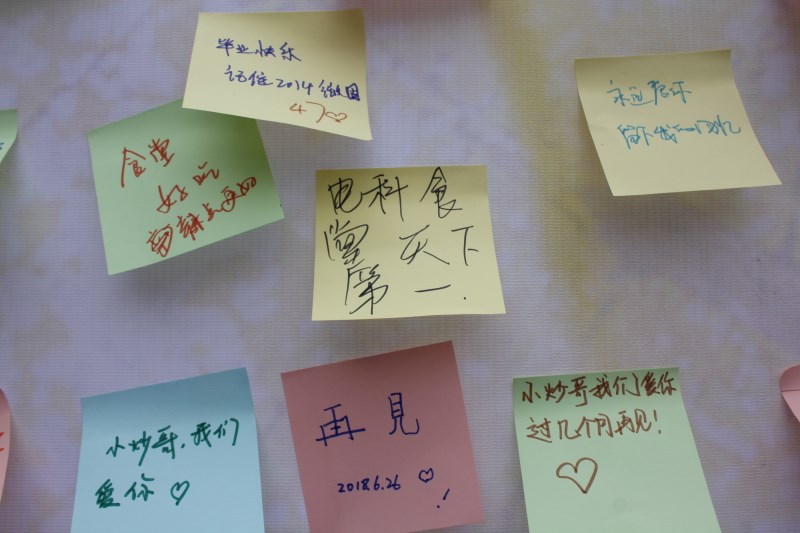 毕业快乐
记住2014级
47♡
食堂
好吃
再辣点更好
电科食
堂 天下
第一.
永远
小炒哥,我们
爱你♡
再見
2018.6.26 ♡!
小炒哥我们爱你
过几个月再见!
♡